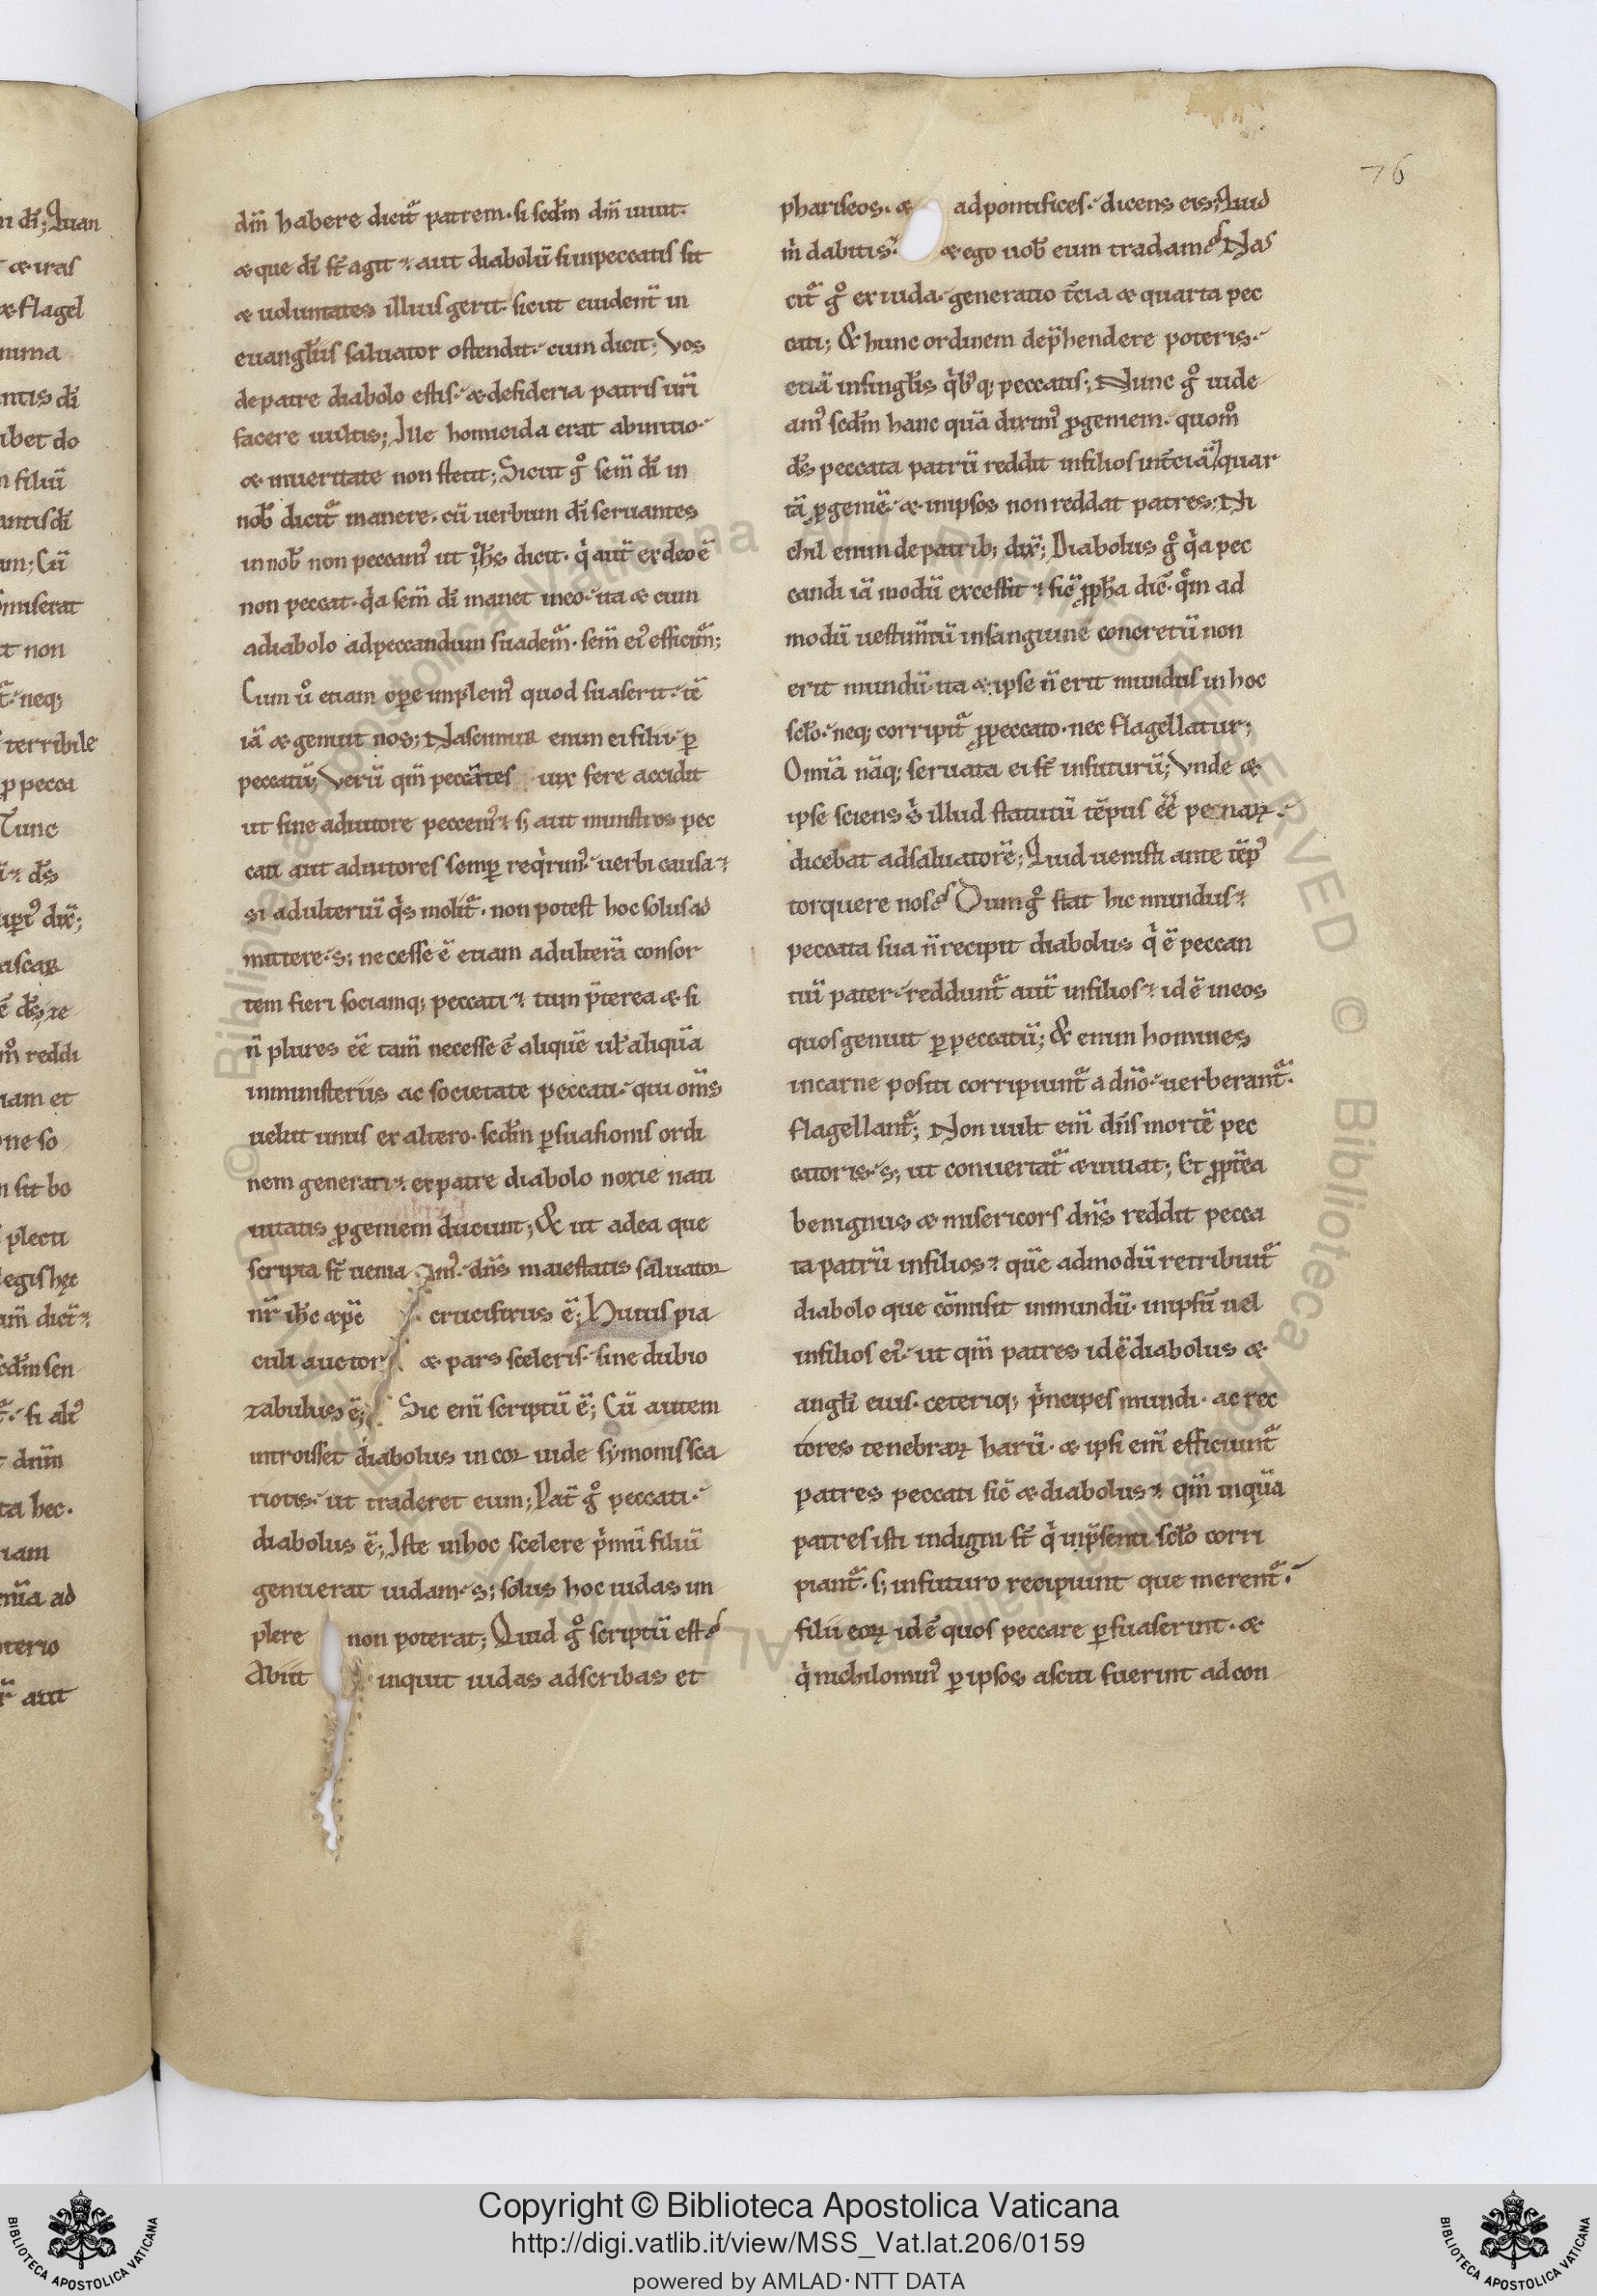 76
dm̄ habere dicit᷑ patrem. si scd̄m dm̄ uiuit.
& que di̅ st̅ agit. aut diabolū si inpeccatis sit
& uoluntates illius gerit. sicut euident̄ in
euangłiis saluator ostendit. cum dicit; Vos
de patre diabolo estis. & desideria patris ur̄i
facere uultis; Ille homicida erat ab initio.
& in ueritate non stetit; Sicut gͦ sem̄ di̅ in
nob̄ dicit᷑ manere. cū uerbum di̅ seruantes
in nob̄ non peccamꝰ ut ioh̄s dicit. qͥ aut̄ ex deo ē
non peccat. qͥa sem̄ di̅ manet in eo. ita & cum
a diabolo ad peccandum suadem᷑. sem̄ eiꝰ efficim᷑;
Cum uͦ etiam oꝑe implemꝰ quod suaserit. tē
iā & genuit nos; Nascimur enim ei filii. ꝑ
peccatū; Verū qm̄ peccātes uix fere accidit
ut sine adiutore peccemꝰ. s; aut ministros pec
cati aut adiutores semꝑ reqͥrimꝰ. uerbi causa.
si adulteriū qͥs molit᷑. non potest hoc solus ad
mittere. s; necesse ē etiam adulterā consor
tem fieri sociamq; peccati. tum p̄terea & si
n̄ plures ēē tam̄ necesse ē aliquē uł aliquā
in ministeriis ac societate peccati. qui om̄s
uelut unus ex altero. scd̄m ꝑsuasionis ordi
nem generati. ex patre diabolo noxie nati
uitatis ꝓgeniem ducunt; & ut ad ea que
scripta st̄ ueniamꝰ. dn̄s maiestatis saluator
nr̄ ih̄c xp̄c crucifixus ē; Huius pia
culi auctor & pars sceleris. sine dubio
zabulus ē; Sic eni̅ scriptū ē; Cū autem
introisset diabolus in cor iude symonis sca
riotis. ut traderet eum; Pat̄ gͦ peccati.
diabolus ē; Iste in hoc scelere pͥmū filiū
genuerat iudam. s; solus hoc iudas im
plere non poterat; Quid gͦ scriptū est?
Abiit inquit iudas ad scribas et
phariseos. & ad pontifices. dicens eis; Quid
mͥ dabitis. & ego uob̄ eum tradam? Nas
cit᷑ gͦ ex iuda. generatio t̄cia & quarta pec
cati; & hunc ordinem dep̄hendere poteris.
etiā in singłis qͥbꝰq; peccatis; Nunc gͦ uide
amꝰ scd̄m hanc quā diximꝰ ꝓgeniem. quomͦ
ds̄ peccata patrū reddit in filios in t̄ciā / quar
tā ꝓgeniē. & in ipsos non reddat patres; Ni
chil enim de patrib; dix̄; Diabolus gͦ qͥa pec
candi iā modū excessit. sic̄ ꝓph̄a dic̄. quēm ad
modū uestimtū in sanguine concretū non
erit mundū. ita & ipse n̄ erit mundus in hoc
scl̄o. neq; corripit᷑ ꝓ peccato. nec flagellatur;
Omīa nāq; seruata ei st̄ in futurū; Vnde &
ipse sciens sͥ illud statutū tēpus ēē penaꝝ.
dicebat ad saluatorē; Quid uenisti ante tēpꝰ
torquere nos? Dum gͦ stat hic mundus.
peccata sua n̄ recipit diabolus qͥ ē peccan
tiū pater. reddunt᷑ aut̄ in filios. id ē in eos
quos genuit ꝑ peccatū; & enim homines
in carne positi corripiunt᷑ a dn̄o. uerberant᷑.
flagellant᷑; Non uult eni̅ dn̄s mortē pec
catoris. s; ut conuertat᷑ & uiuat; Et ꝓpt̄ea
benignus & misericors dn̄s reddit pecca
ta patrū in filios. quē admodū retribuit᷑
diabolo que cōmisit in mundū. in ipsū uel
in filios eiꝰ. ut qm̄ patres id ē diabolus &
angłi eius. ceteriq; pͥncipes mundi. ac rec
tores tenebraꝝ harū. & ipsi eni̅ efficiunt᷑
patres peccati sic̄ & diabolus. qm̄ inquā
patres isti indigni st̄ qͥ in p̄senti scl̄o corri
piant᷑. s; in futuro recipiunt que merent᷑.
filii eoꝝ id ē quos peccare ꝑsuaserint. &
qͥ nichilominꝰ ꝑ ipsos asciti fuerint ad con
Copyright © Biblioteca Apostolica Vaticana
http://digi.vatlib.it/view/MSS_Vat.lat.206/0159
powered by AMLAD·NTT DATA
BIBLIOTECA APOSTOLICA VATICANA
BIBLIOTECA APOSTOLICA VATICANA